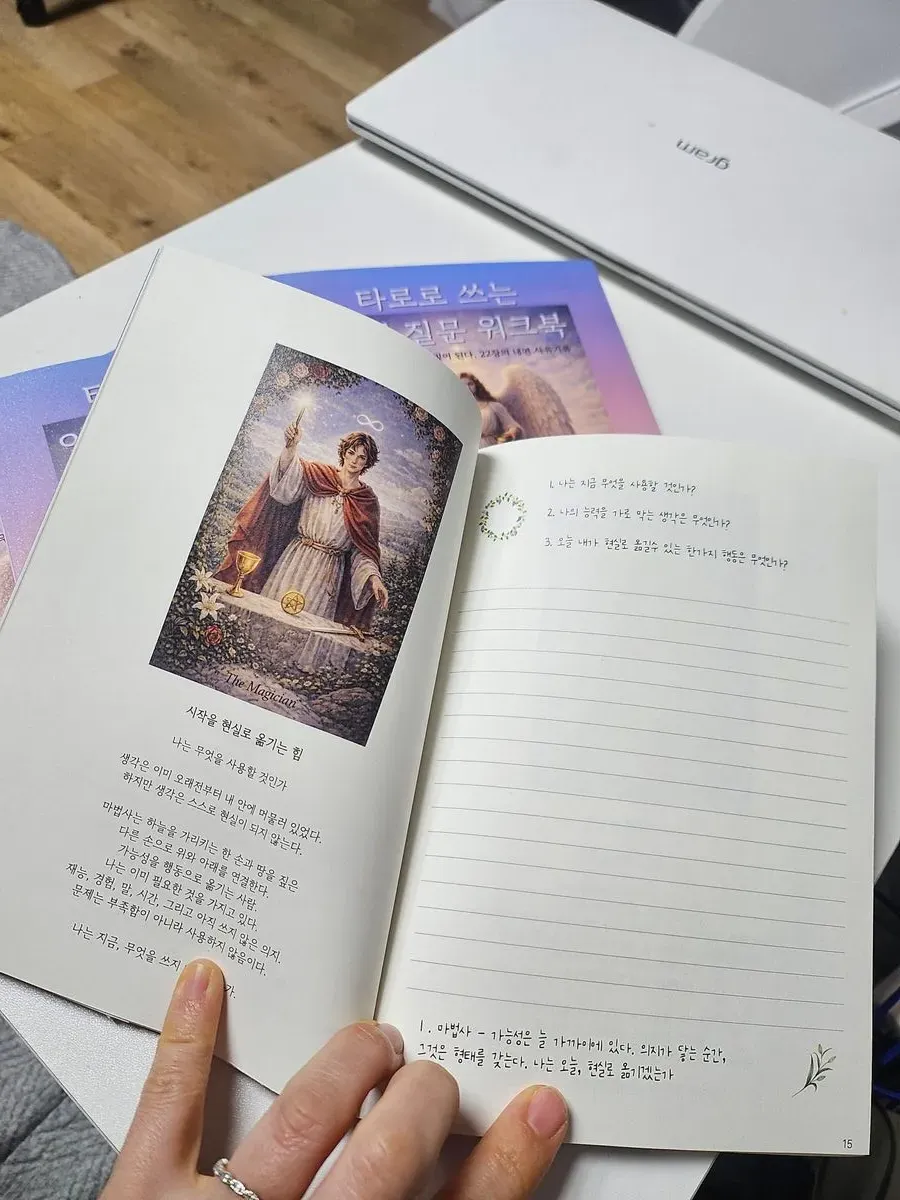 gram
타로로 쓰는
질문 워크북
된다, 22장의 내면 사유기록
The Magician
시작을 현실로 옮기는 힘
나는 무엇을 사용할 것인가
생각은 이미 오래전부터 내 안에 머물러 있었다.
하지만 생각은 스스로 현실이 되지 않는다.
마법사는 하늘을 가리키는 한 손과 땅을 짚은
다른 손으로 위와 아래를 연결한다.
가능성을 행동으로 옮기는 사람.
나는 이미 필요한 것을 가지고 있다.
재능, 경험, 말, 시간, 그리고 아직 쓰지 않은 의지.
문제는 부족함이 아니라 사용하지 않음이다.
나는 지금, 무엇을 쓰지
가.
1. 나는 지금 무엇을 사용할 것인가?
2. 나의 능력을 가로 막는 생각은 무엇인가?
3. 오늘 내가 현실로 옮길수 있는 한가지 행동은 무엇인가?
1. 마법사 - 가능성은 늘 가까이에 있다. 의지가 닿는 순간,
그것은 형태를 갖는다. 나는 오늘, 현실로 옮기겠는가
15